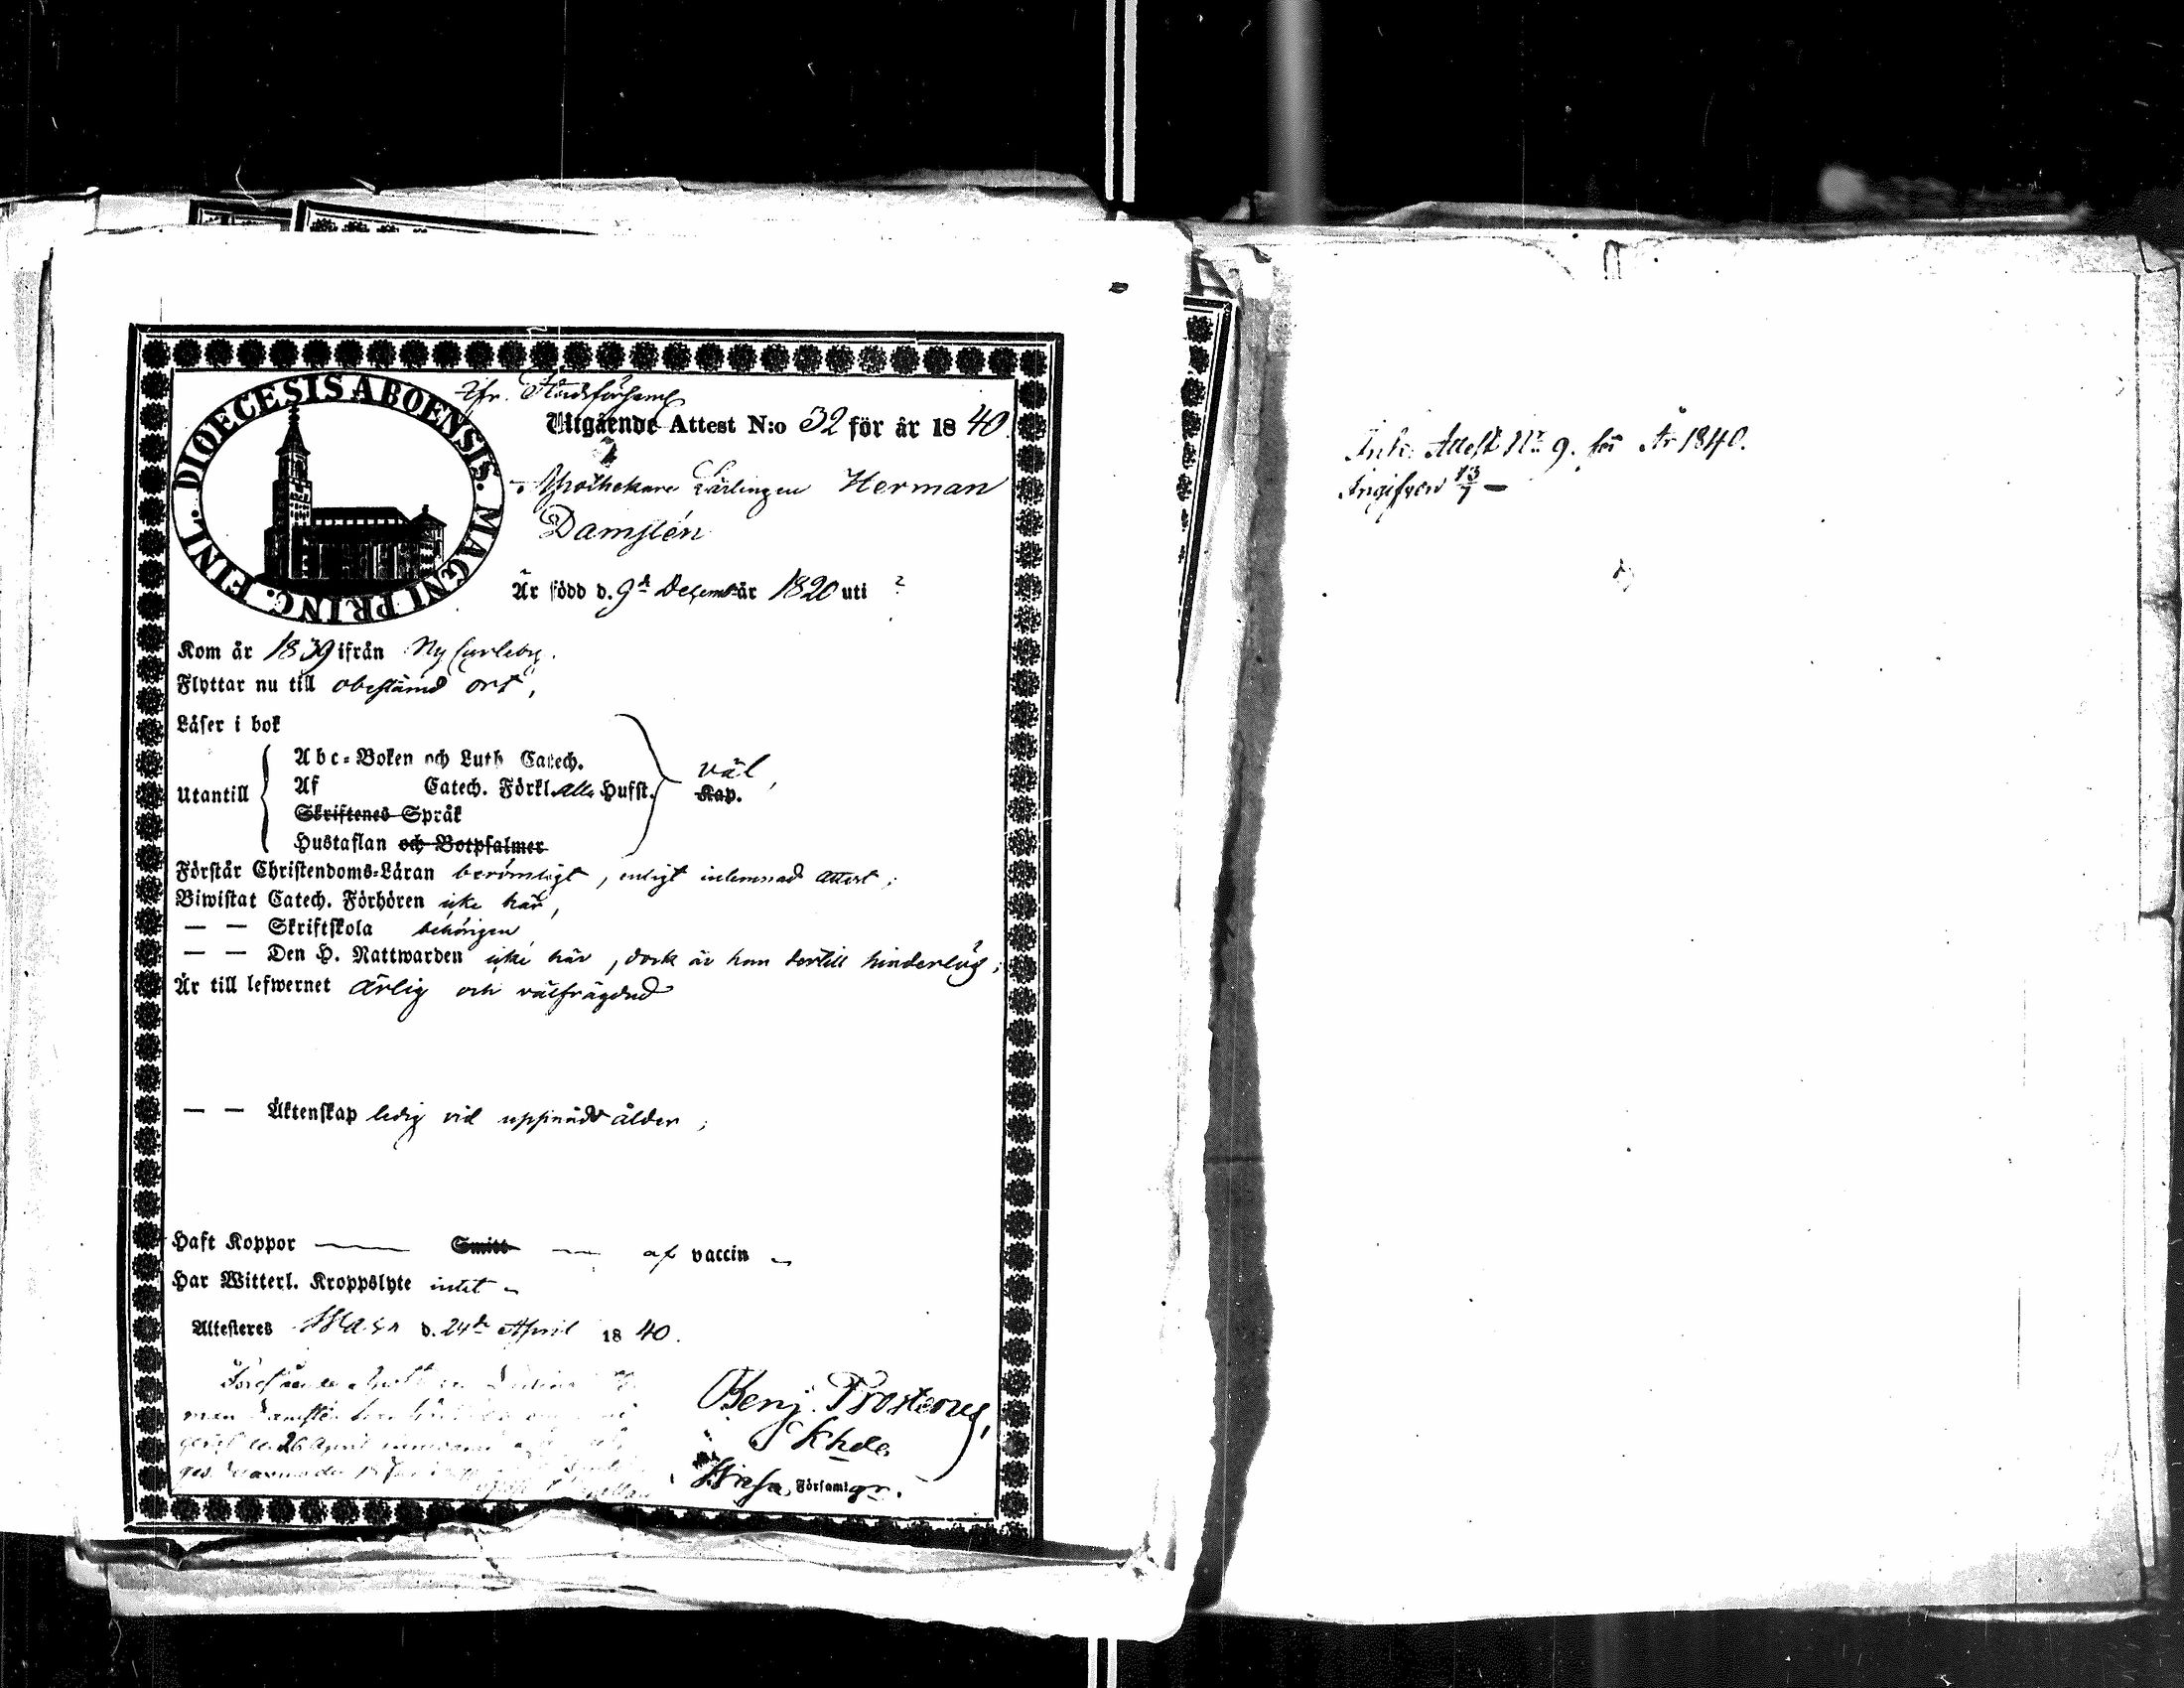 DIOECESIS ABOENSIS. MAGNI PRINC. FINL.
ifr. Stadsförsaml
Utgående Attest N:o 32 för år 1840.
Apothekare Lärlingen Herman
Damstén
Är född d. 9de Decemb år 1820 uti ?
Kom år 1839 ifrån Ny Carleby.
Flyttar nu till obestämd ort,
Läser i bok
Abc-Boken och Luth Catech.
Utantill Af Catech. Förkl. alla Hufst. väl, Kap.
Skriftenes Språk
Hustaflan och Botpsalmer
Förstår Christendoms-Läran berömligt, enligt inlemnad attest;
Biwistat Catech. Förhören icke här,
— — Skriftskola behörigen
— — Den H. Nattwarden icke här, dock är han dertill hinderlös;
Är till lefwernet ärlig och välfrägdad
— — Äktenskap ledig vid uppnådd ålder;
Haft Koppor — Smitt — af vaccin
Har Witterl. Kroppslyte intet
Attesteres Wasa d. 24de April 1840.
Benj. Frosterus,
Khde
Wasa Församlgr.
Ink. Attest N:o 9. för År 1840.
Angifven 13/7 —